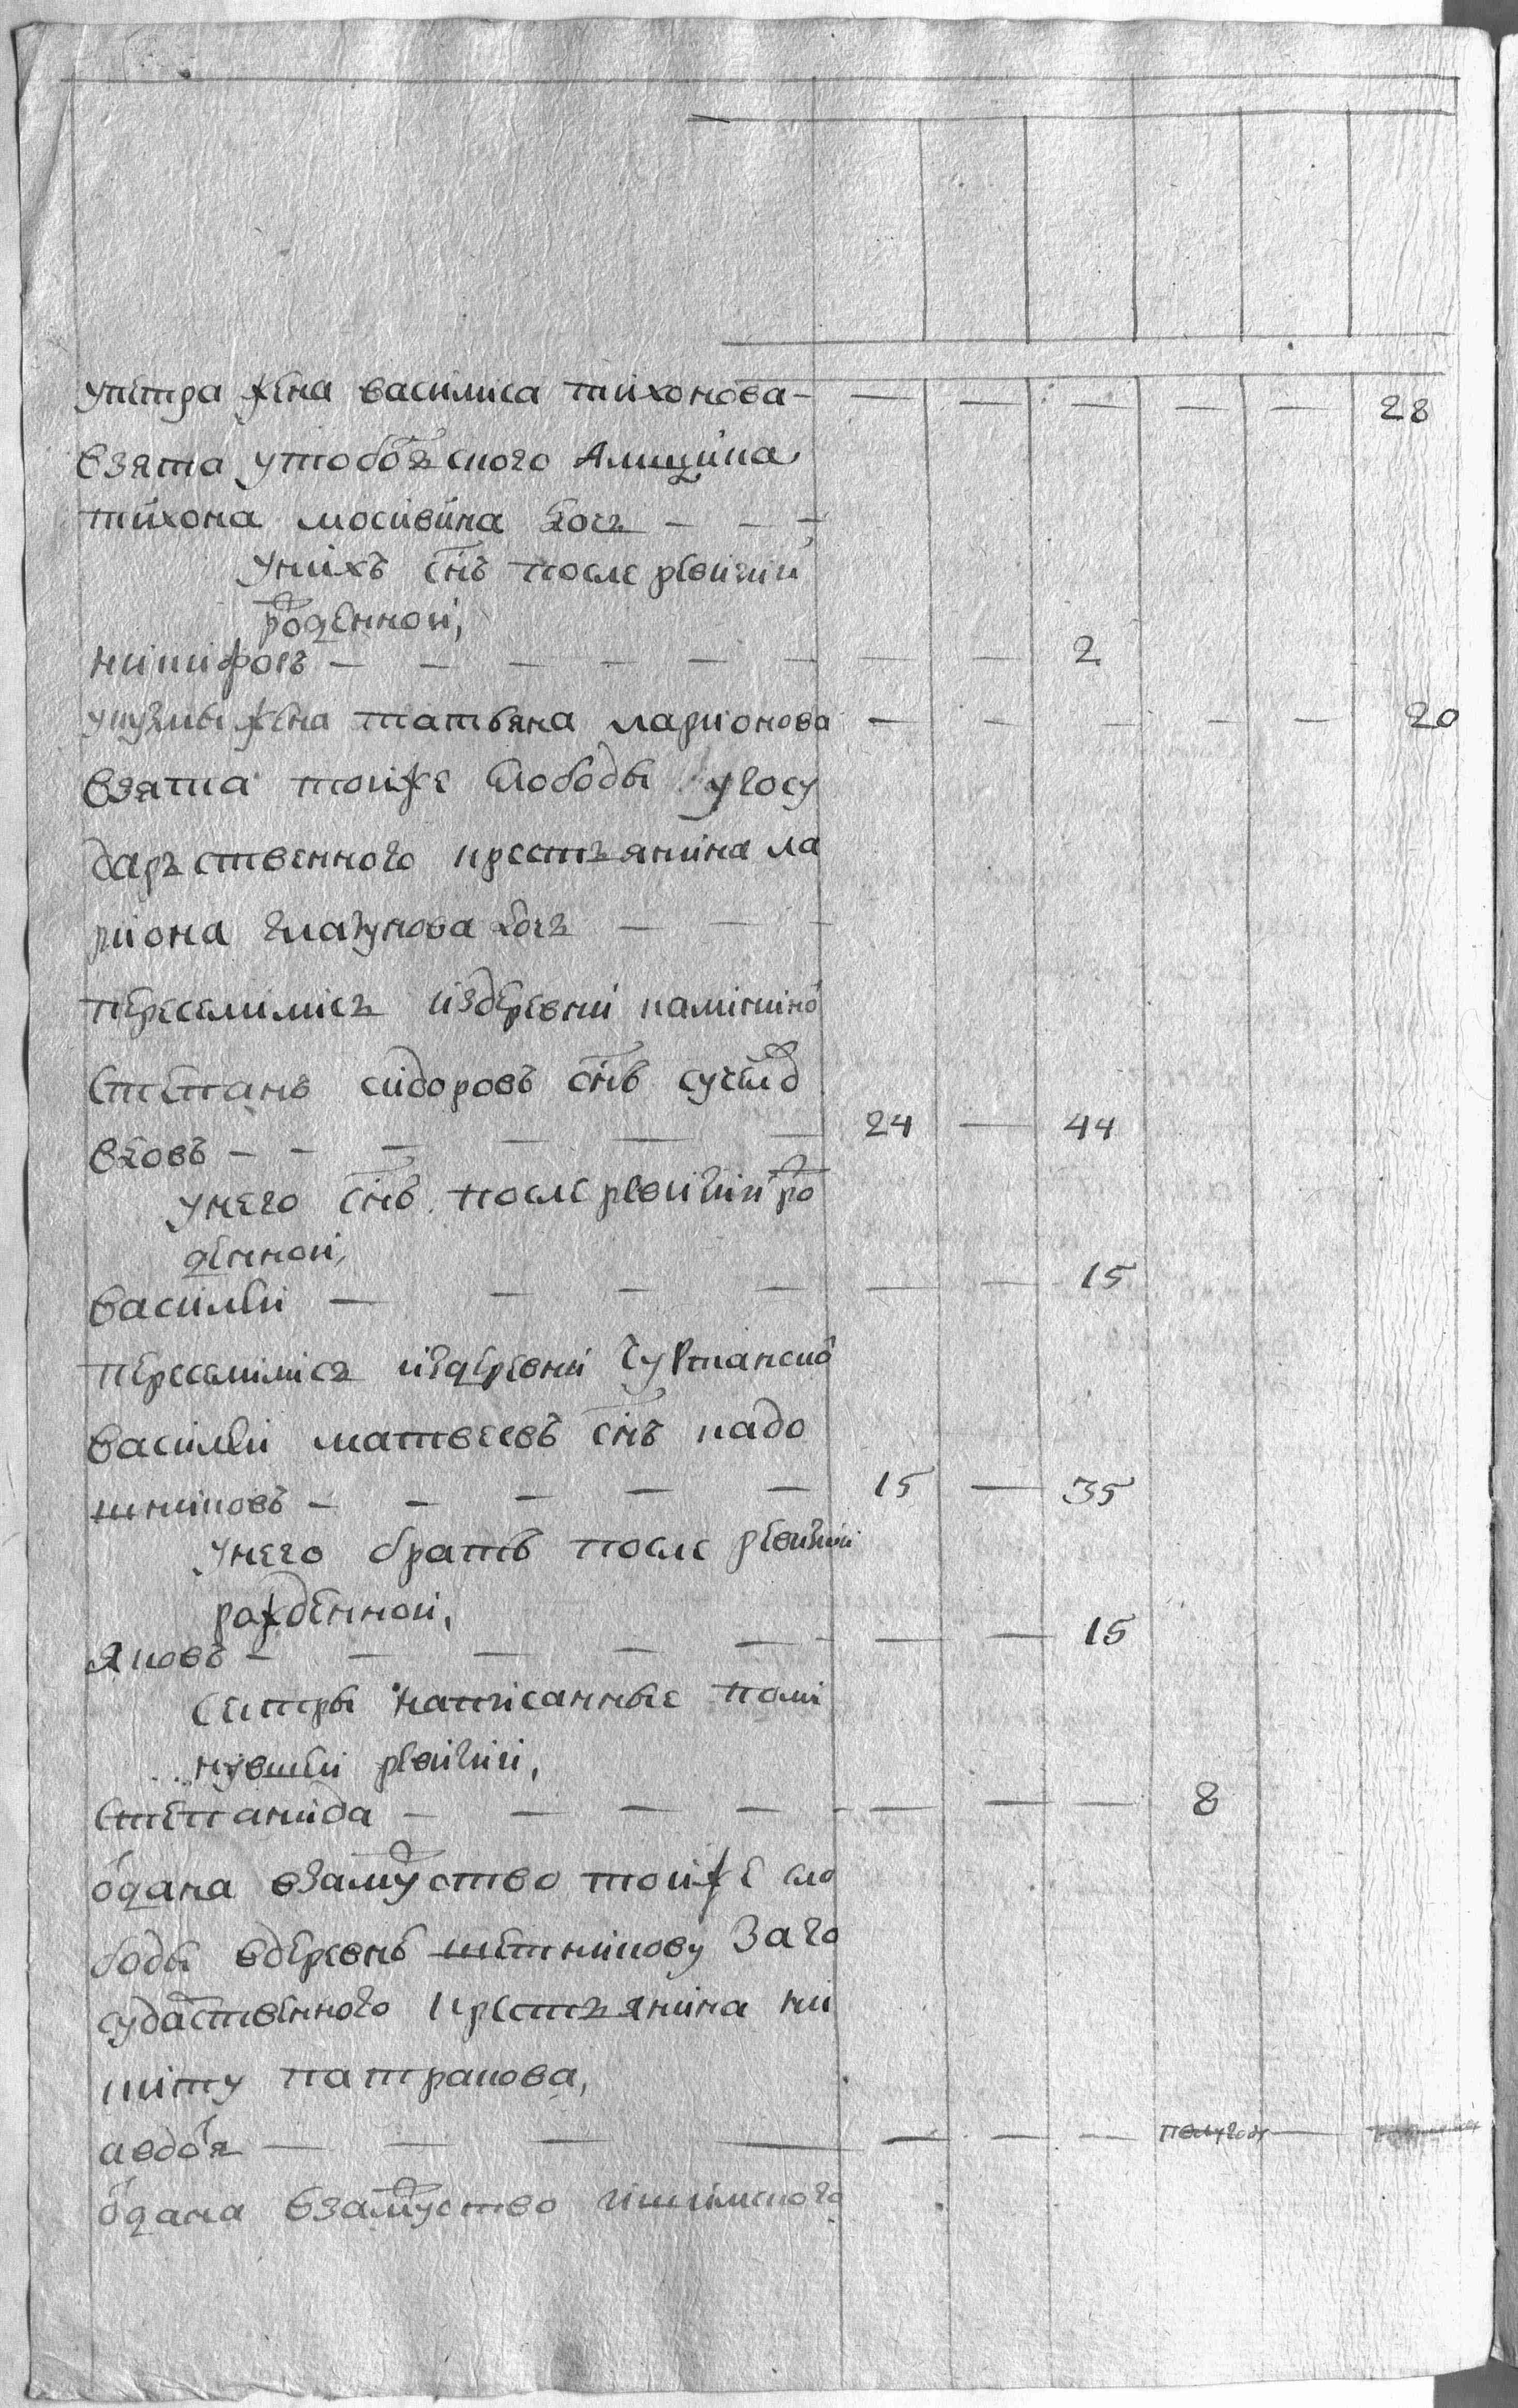 упетра жена василиса тихонова — — — — — — 28
взята утоболского Ямщика
тихона москвина дочь — — —
Унихъ снъ после ревизии
рожденной,
никифоръ — — — — — — — — 2
укузмы жена татьяна ларионова — — — — — 20
взята тойже слободы угосу
дарственного крестьянина ла
риона глазунова дочь — — —
переселились издеревни каликино
степанъ сидоровъ снъ
24 — 44
у него снъ после ревизии ро
жденной,
василей — — — — — — 15
переселились издеревни
василей матвеевъ снъ кадо
шниковъ — — — — — 15 — 35
унего братъ после ревизии
рожденной,
яковъ — — — — — — — 15
сестры написанные поми
нувшей ревизии,
степанида — — — — — — — 8
одана взамуство тойже сло
боды вдеревню шетникову За го
сударственного крестьянина ни
киту патракова,
авдотя — — — — — — — полугоду —
одана взамуство ишимского